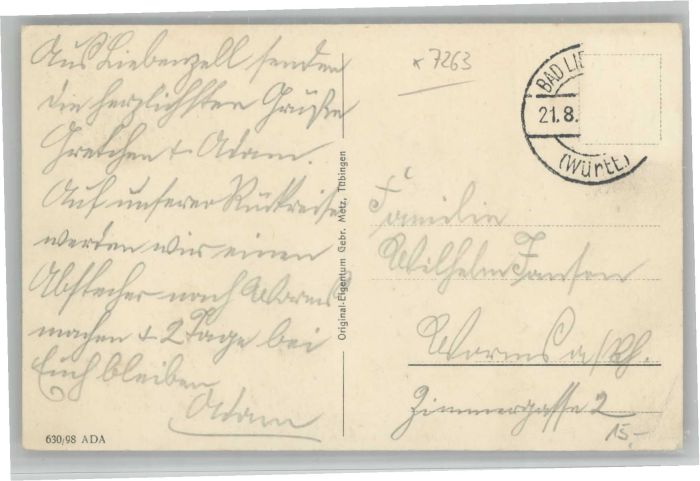 Aus Liebenzell senden
die herzlichsten Grüße
Gretchen + Adam.
Auf unserer Rückreise
werden wir einen
Abstecher nach Worms
machen + 2 Tage bei
Euch bleiben
Adam
630/98 ADA
Original-Eigentum Gebr. Metz, Tübingen
x 7263
BAD LIE
21.8.
(Württ.)
Familie
Wilhelm Jansen
Worms a/Rh.
Zimmergasse 2
15.-